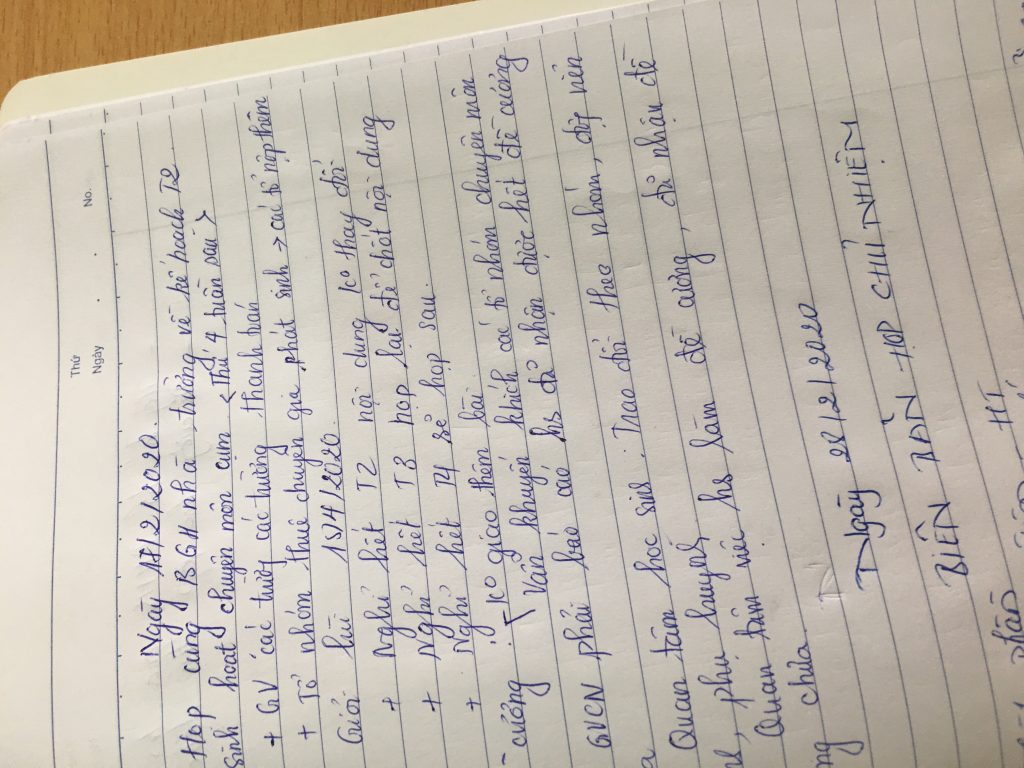 Thứ
Ngày
No.
Ngày 17/2/2020
Họp cùng BGH nhà trường về kế hoạch T2
Sinh hoạt chuyên môn cụm < Thứ 4 tuần sau >
+ GV các trường các trường thanh bán
+ Tổ nhóm thuê chuyên gia phát sinh → các tổ nộp thêm
Cuối kì 15/4/2020
+ Nghỉ hết T2 nội dung ko thay đổi
+ Nghỉ hết T3 họp lại để chốt nội dung
+ Nghỉ hết T4 sẽ họp sau.
ko giao thêm bài
cương Vẫn khuyến khích các tổ nhóm chuyên môn
GVCN phải báo cáo hs đã nhận được hết đề cương
Quan tâm học sinh. Trao đổi theo nhóm, lớp
phụ huynh
Quan tâm việc hs làm đề cương, đã nhận đề
chưa.
Ngày 28/2/2020
BIÊN BẢN HỌP CHỦ NHIỆM
phần